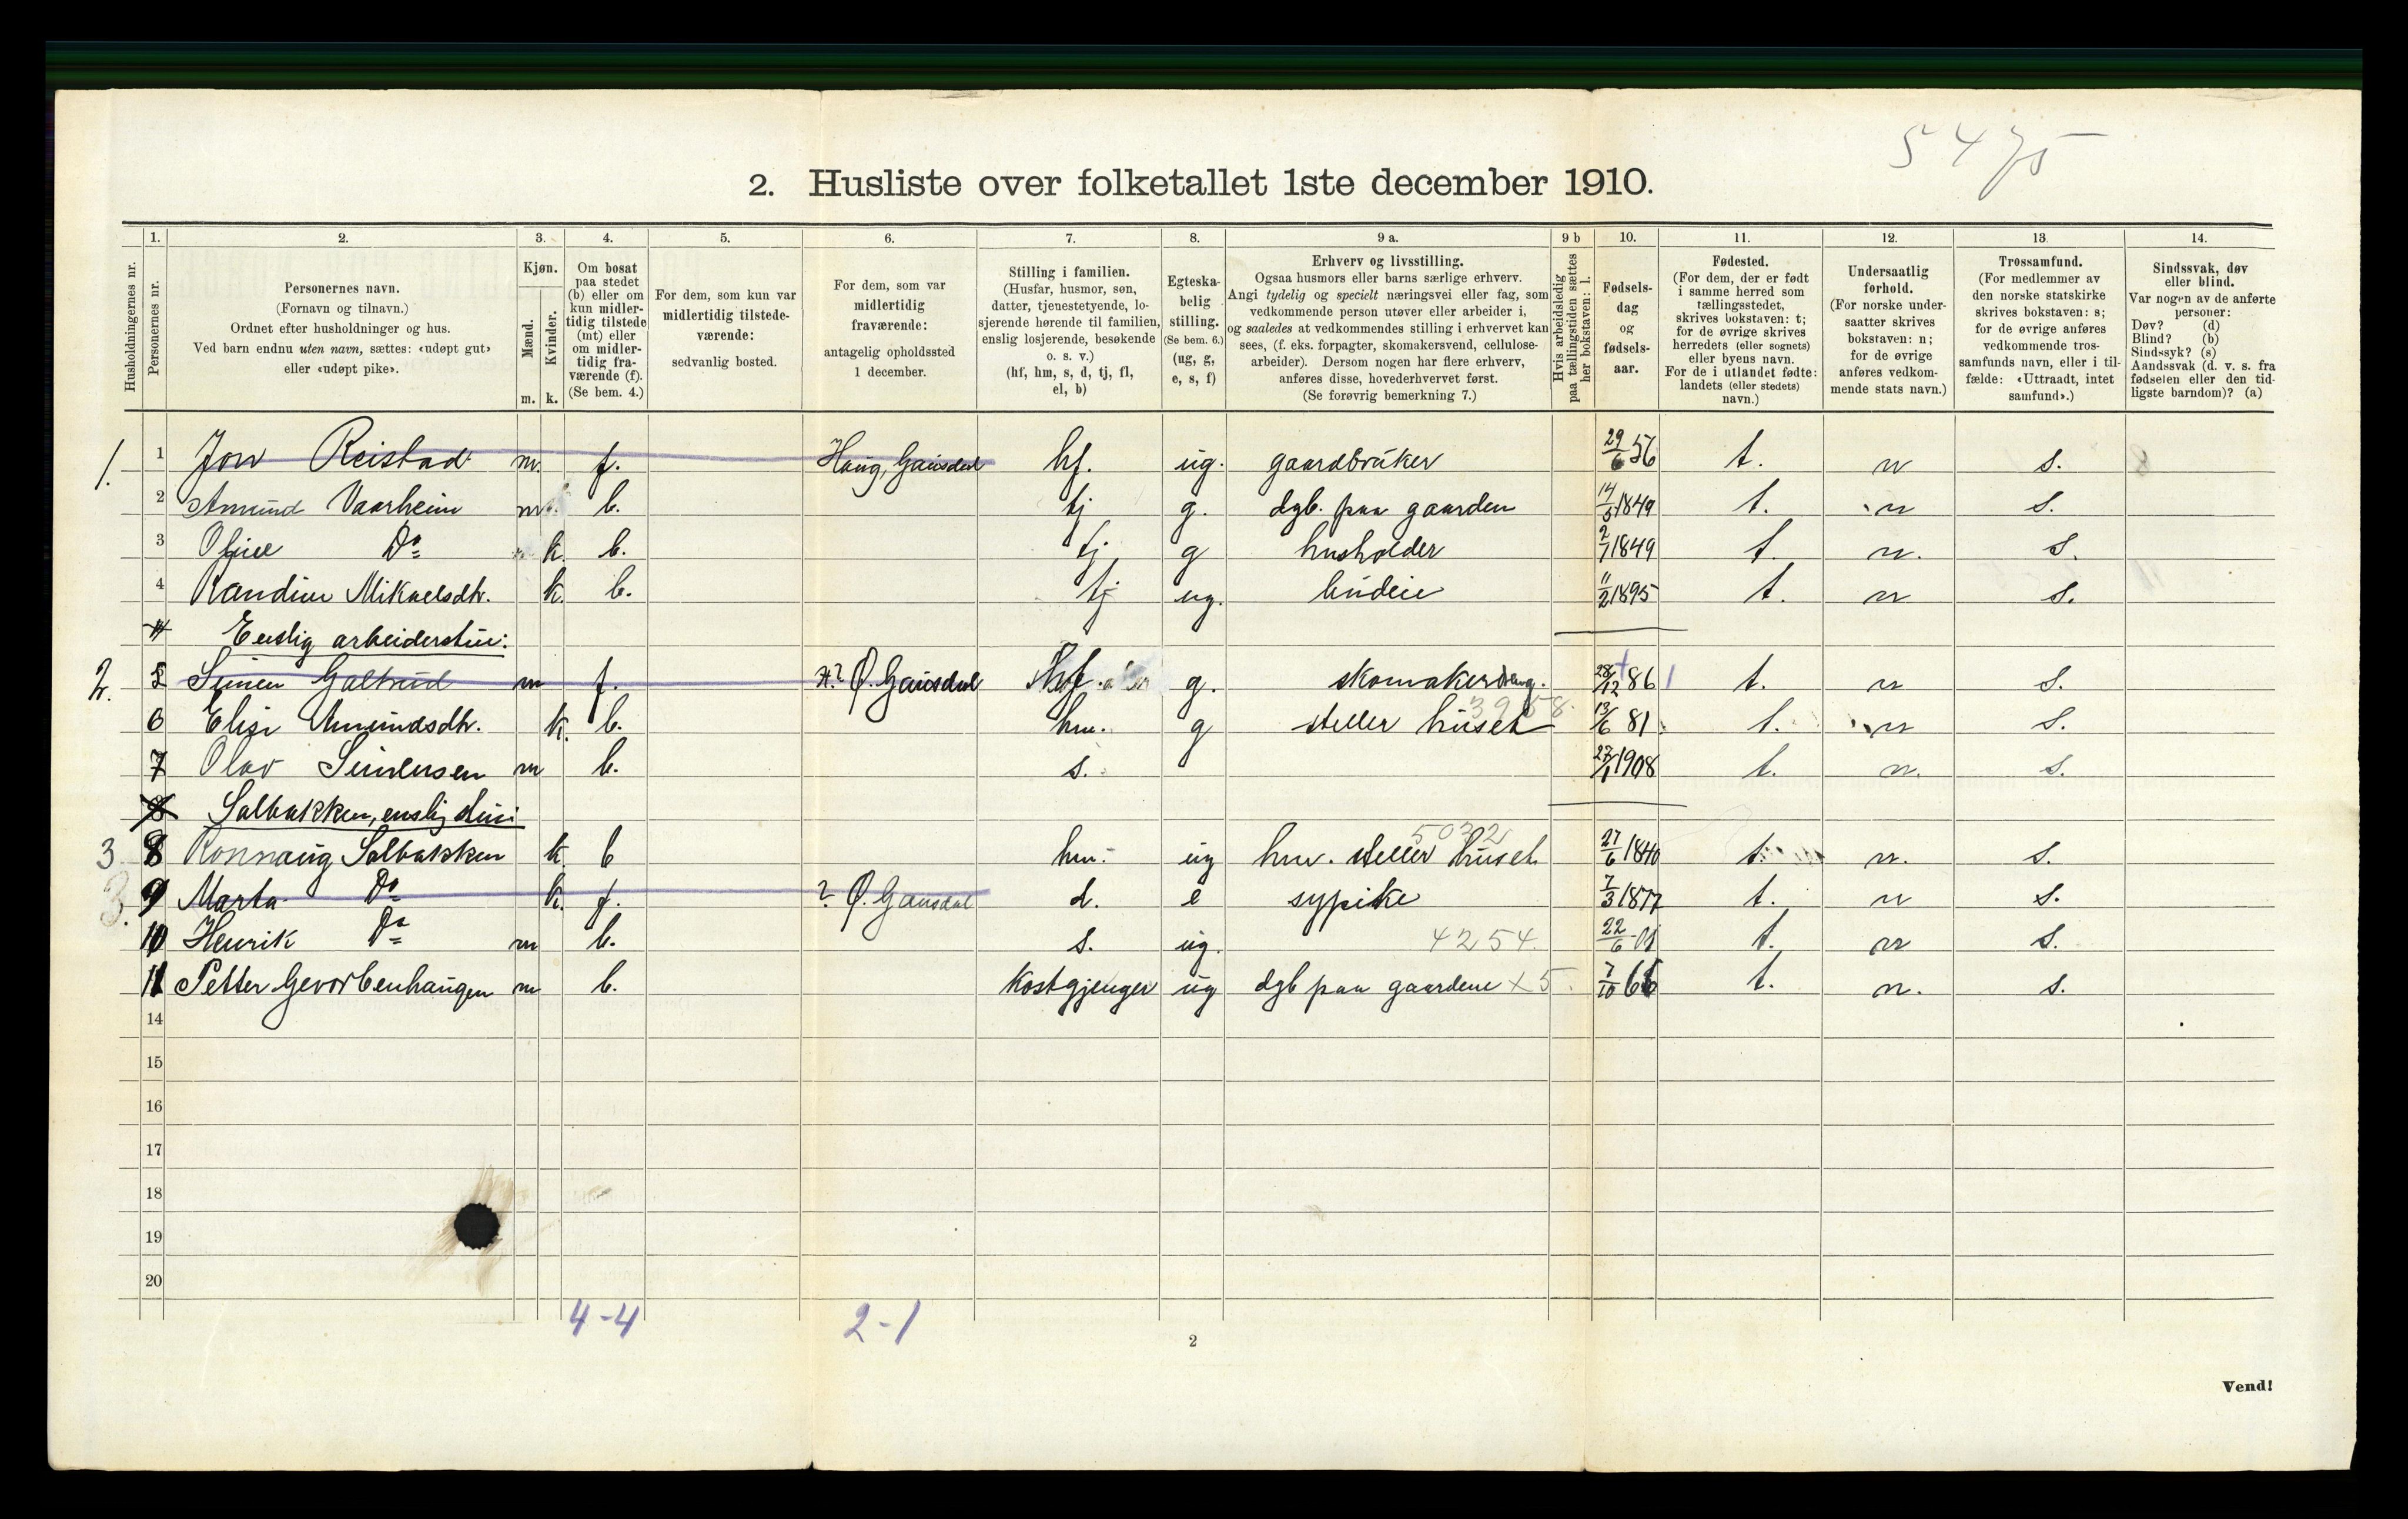 5475
2. Husliste over folketallet 1ste december 1910.
Husholdningernes nr.
1.
Personernes nr.
2.
Personernes navn.
(Fornavn og tilnavn.)
Ordnet efter husholdninger og hus.
Ved barn endnu uten navn, sættes: «udøpt gut»
eller «udøpt pike».
3.
Kjøn.
Mænd.
Kvinder.
m. k.
4.
Om bosat
paa stedet
(b) eller om
kun midler-
tidig tilstede
(mt) eller
om midler-
tidig fra-
værende (f).
(Se bem. 4.)
5.
For dem, som kun var
midlertidig tilstede-
værende:
sedvanlig bosted.
6.
For dem, som var
midlertidig
fraværende:
antagelig opholdssted
1 december.
7.
Stilling i familien.
(Husfar, husmor, søn,
datter, tjenestetyende, lo-
sjerende hørende til familien,
enslig losjerende, besøkende
o. s. v.)
(hf, hm, s, d, tj, fl,
el, b)
8.
Egteska-
belig
stilling.
(Se bem. 6.)
(ug, g,
e, s, f)
9 a.
Erhverv og livsstilling.
Ogsaa husmors eller barns særlige erhverv.
Angi tydelig og specielt næringsvei eller fag, som
vedkommende person utøver eller arbeider i,
og saaledes at vedkommendes stilling i erhvervet kan
sees, (f. eks. forpagter, skomakersvend, cellulose-
arbeider). Dersom nogen har flere erhverv,
anføres disse, hovederhvervet først.
(Se forøvrig bemerkning 7.)
9 b
Hvis arbeidsledig
paa tællingstiden sættes
her bokstaven: l.
10.
Fødsels-
dag
og
fødsels-
aar.
11.
Fødested.
(For dem, der er født
i samme herred som
tællingsstedet,
skrives bokstaven: t;
for de øvrige skrives
herredets (eller sognets)
eller byens navn.
For de i utlandet fødte:
landets (eller stedets)
navn.)
12.
Undersaatlig
forhold.
(For norske under-
saatter skrives
bokstaven: n;
for de øvrige
anføres vedkom-
mende stats navn.)
13.
Trossamfund.
(For medlemmer av
den norske statskirke
skrives bokstaven: s;
for de øvrige anføres
vedkommende tros-
samfunds navn, eller i til-
fælde: «Uttraadt, intet
samfund».)
14.
Sindssvak, døv
eller blind.
Var nogen av de anførte
personer:
Døv? (d)
Blind? (b)
Sindssyk? (s)
Aandssvak (d. v. s. fra
fødselen eller den tid-
ligste barndom)? (a)
1. 1 Jon Reistad m. f. Haug, Gausdal hf. ug. gaardbruker 29/6 56 t. n s.
2 Amund Vaarheim m b. tj g. dgb. paa gaarden 14/5 1849 t. n s.
3 Do k. b. tj g husholder 2/7 1849 t. n. s.
4 Randine Mikaelsdtr. k. b. tj ug. budeie 11/2 1895 t. n s.
Enslig arbeiderstue:
2. 5 Simen Galtrud m f. ? Ø. Gausdal Hf g. skomakerdreng. 28/12 86 t. n s.
6 Elise Amundsdtr. k. b. hm. g steller huset 3958 13/6 81 t. n s.
7 Olav Simensen m b. s. 27/1 1908 t. n. s.
Solbakken, enslig stue:
3 8 Ronnaug Solbakken k. b hm. ug hm. steller huset 5032 27/6 1840 t. n. s.
3. 9 Marta Do k. f. ? Ø. Gausdal d. e sypike 7/3 1877 t. n s.
10 Henrik Do m b. s. ug. 4254. 22/6 01 t. n s.
11 Petter m b. kostgjenger ug dgb paa gaardene x 5. 7/10 66 t. n. s.
14
15
16
17
18
19
20
4-4 2-1
2
Vend!